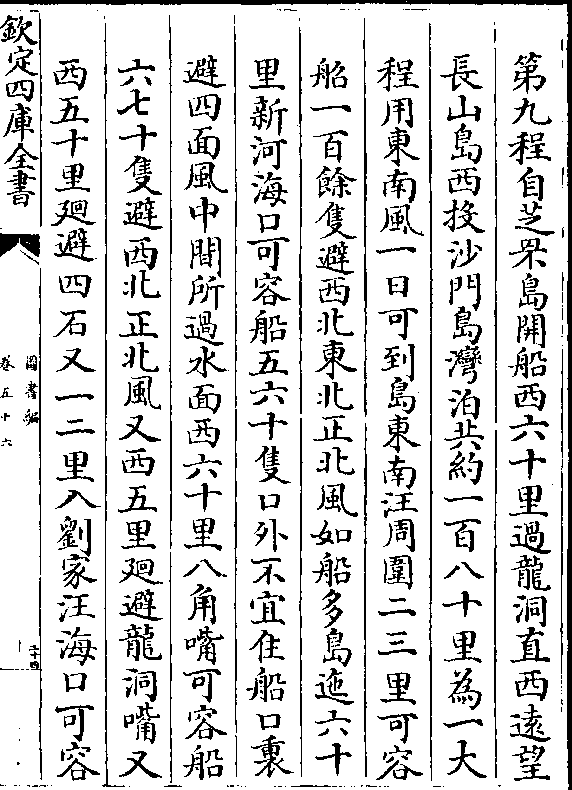 第九程自芝罘島開船西六十里過龍洞直西遠望
長山島西投沙門島灣泊共約一百八十里為一大
程用東南風一日可到島東南汪周圍二三里可容
船一百餘隻避西北東北正北風如船多島迤六十
里新河海口可容船五六十隻口外不宜住船口裏
避四面風中間所過水面西六十里八角嘴可容船
六七十隻避西北正北風又西五里廻避龍洞嘴又
西五十里廻避四石又一二里入劉家汪海口可容
欽定四庫全書
圖書編
卷五十六
二十四